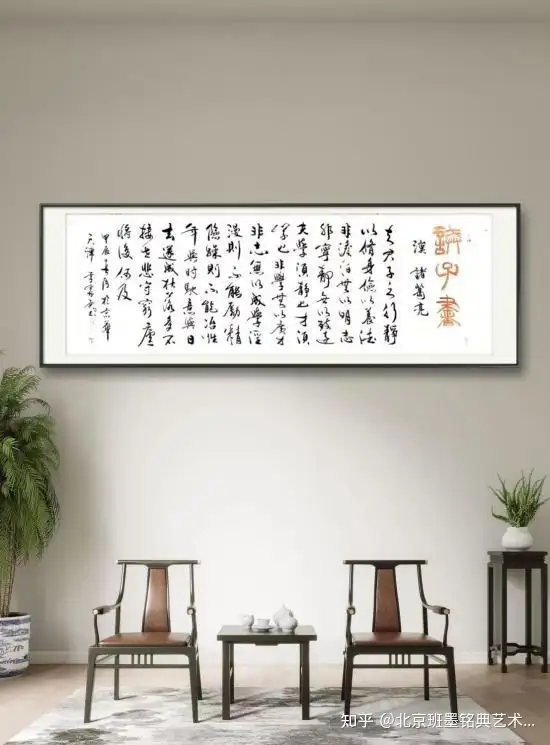 誡子書
漢 諸葛亮
夫君子之行靜
以脩身儉以養德
非澹泊無以明志
非寧靜無以致遠
夫學須靜也才須
學也非學無以廣才
非志無以成學淫
漫則不能勵精
險躁則不能冶性
年與時馳意與日
去遂成枯落多不
接世悲守窮廬
將復何及
甲辰 月於京華
天津 李
知乎 @北京班墨铭典艺术...